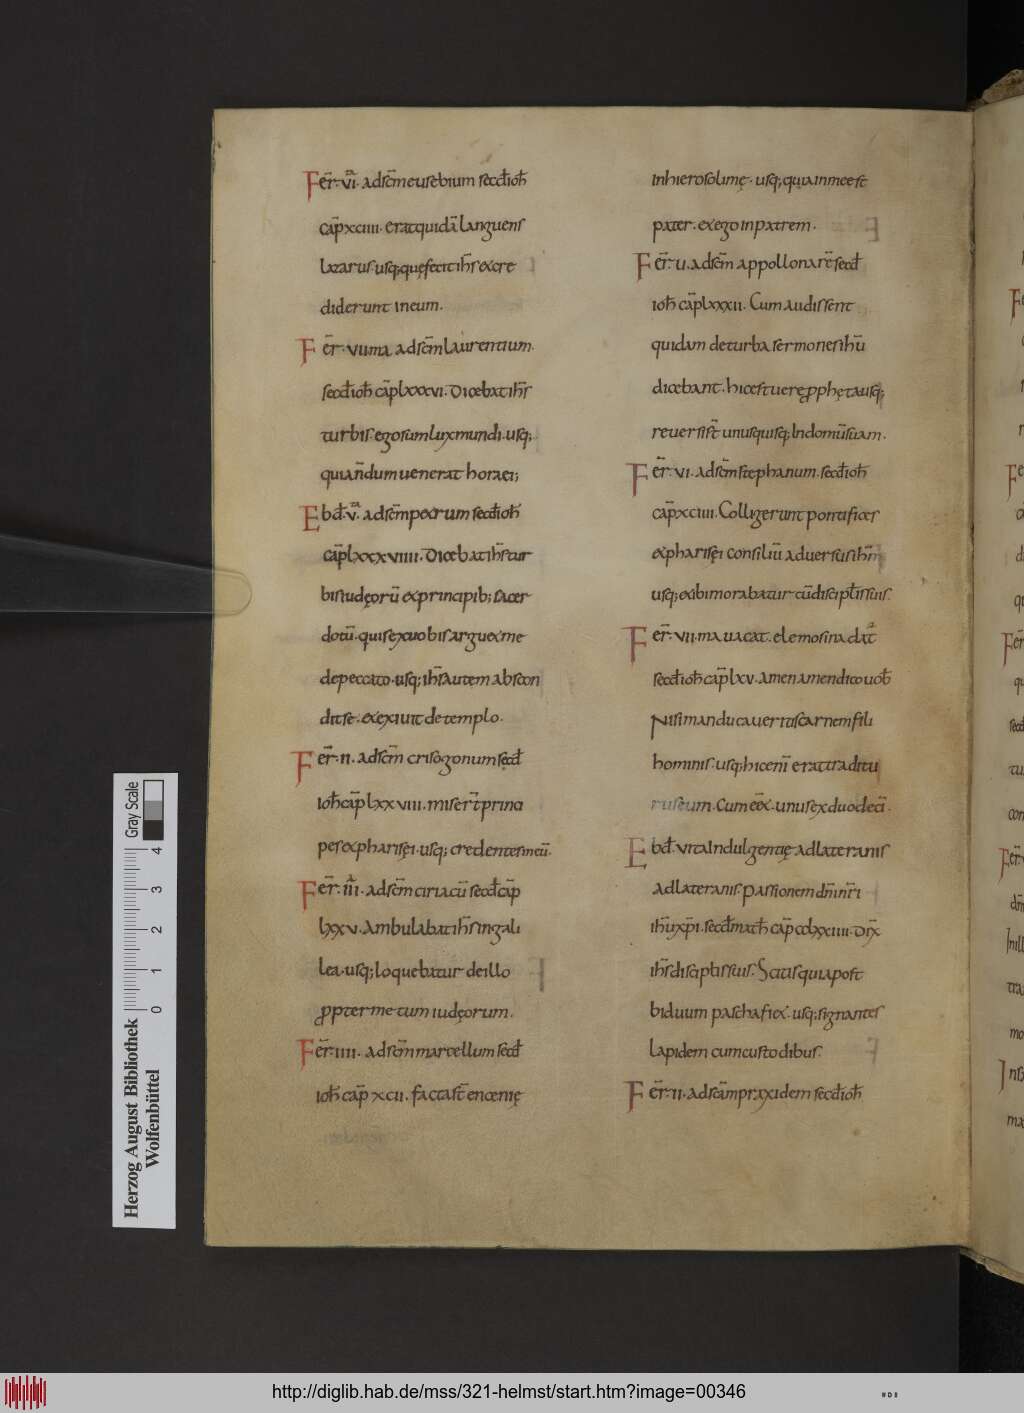 Fer̅·vi̅· ad sc̅m eusebium secd̅ ioh̅
cap̅ xciiii· erat quida̅ languens
lazarus· usq; quę fecit ih̅s & cre
diderunt in eum·
Fer̅· vii ma ad sc̅m laurentium·
secd̅ ioh̅ cap̅ lxxxvi· Dicebat ih̅s
turbis· ego sum lux mundi· usq;
quia n̅dum uenerat hora ei;
Ebd̅· v̅· ad sc̅m petrum secd̅ ioh̅
cap̅ lxxxviiii· Dicebat ih̅s tur
bis iudęoru̅ & principib; sacer
dotu̅· quis ex uobis arguet me
de peccato· usq; ih̅s autem abscon
dit se· & exiuit de templo·
Fer̅· ii· ad sc̅m crisogonum secd̅
ioh̅ cap̅ lxxviii· miser̅t princi
pes & pharisęi· usq; credentes in eu̅·
Fer̅· iii̅· ad sc̅m ciriacu̅ secd̅ cap̅
lxxv· Ambulabat ih̅s in gali
lea· usq; loquebatur de illo
ꝓpter metum iudęorum·
Fer̅· iiii· ad sc̅m marcellum secd̅
ioh̅ cap̅ xcii· facta st̅ encenię
in hierosolimę· usq; quia in me est
pater· & ego in patrem·
Fer̅· u· ad sc̅m appollonare̅ secd̅
ioh̅ cap̅ lxxxii· Cum audissent
quidam de turba sermones ih̅u
dicebant· hic est uere ꝓph&a usq;
reuersi st̅ unusquisq; In domu̅ suam·
Fer̅· vi· ad sc̅m stephanum· secd̅ ioh̅
cap̅ xciiii· Colligerunt pontifices
& pharisęi consiliu̅ aduersus ih̅m
usq; & ibi morabatur cu̅ discip̅lis suis·
Fer̅· vii· ma uacat· elemosina dat̅
secd̅ ioh̅ cap̅ lxv· amen amen dico uob̅
Nisi manducaueritis carnem fili
hominis· usq; hic eni̅ erat traditu
rus eum· Cum e&̅· unus ex duodeci̅·
Ebd̅· vita Indulgentię ad lateranis
ad lateranis· passionem dn̅i nr̅i
ih̅u xp̅i· secd̅ math̅ cap̅ cclxxiiii· Dix̅
ih̅s discip̅lis suis· Scitis quia post
biduum pascha fi&· usq; signantes
lapidem cum custodibus·
Fer̅· ii· ad sc̅am praxidem secd̅ ioh̅
Herzog August Bibliothek
Wolfenbüttel
0 1 2 3 4
Gray Scale
http://diglib.hab.de/mss/321-helmst/start.htm?image=00346